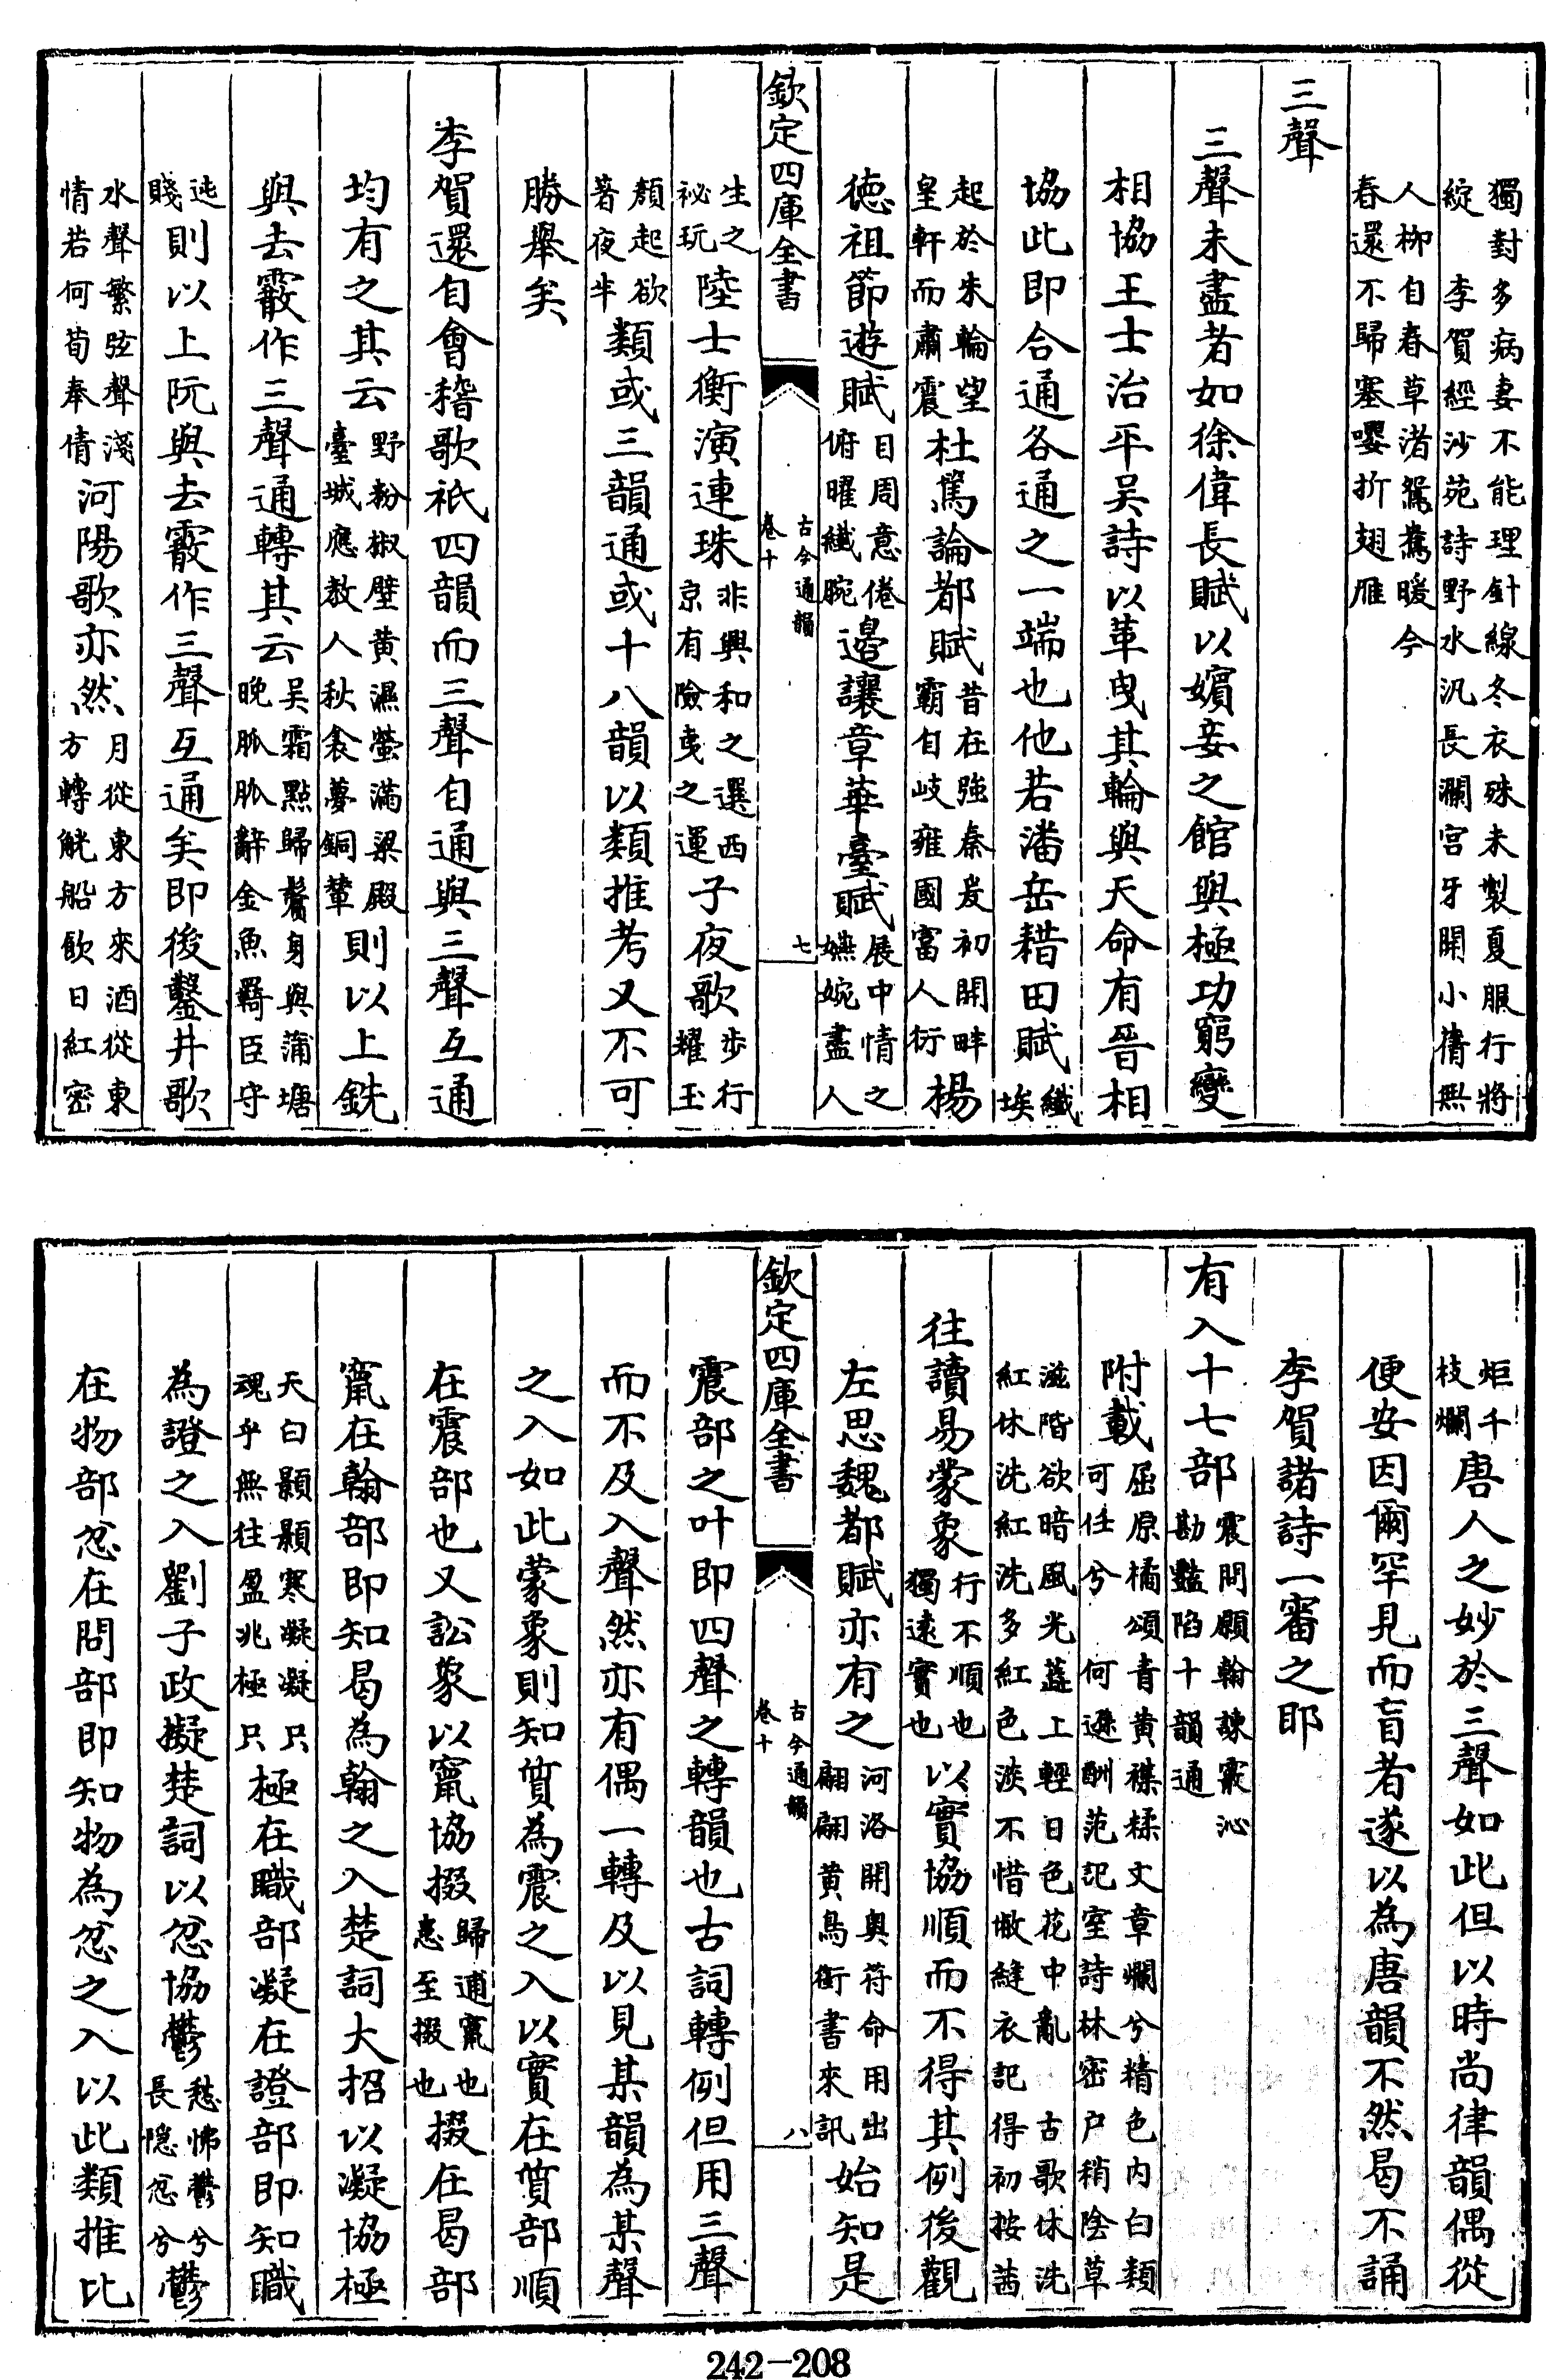 獨對多病妻不能理針線冬衣殊未製夏服行將
綻　李賀經沙苑詩野水汎長瀾宫牙開小蒨無
人柳自春草渚鴛鴦暖今
春還不歸塞嚶折翅雁
三聲
三聲未盡者如徐偉長賦以嬪妾之館與極功窮變
相協王士治平吴詩以革曳其輪與天命有晉相
協此即合通各通之一端也他若潘岳耤田賦纖
埃
起於朱輪望
皇軒而肅震杜篤論都賦昔在強秦爰初開畔
霸自岐雍國富人衍楊
德祖節遊賦目周意倦
俯曜纖腕邉讓章華臺賦展中情之
嬿婉盡人
欽定四庫全書
古今通韻
卷十
七
生之
祕玩陸士衡演連珠非興和之選西
京有險夷之運子夜歌步行
耀玉
顏起欲
著夜半類或三韻通或十八韻以類推考又不可
勝舉矣
李賀還自會稽歌祇四韻而三聲自通與三聲互通
均有之其云野粉椒壁黄濕螢滿梁殿
臺城應教人秋衾夢銅輦則以上銑
與去霰作三聲通轉其云吴霜點歸鬢身與蒲塘
晚脈脈辭金魚羇臣守
迍
賤則以上阮與去霰作三聲互通矣即後鑿井歌
水聲繁弦聲淺
情若何荀奉倩河陽歌亦然月從東方來酒從東
方轉觥船飲日紅密
炬千
枝爛唐人之妙於三聲如此但以時尚律韻偶從
便安因爾罕見而盲者遂以為唐韻不然曷不誦
李賀諸詩一審之耶
有入十七部震問願翰諫霰沁
勘豔陷十韻通
附載屈原橘頌青黄襍糅文章爛兮精色内白類
可任兮　何遜酬范記室詩林密户稍陰草
滋階欲暗風光蕋上輕日色花中亂　古歌休洗
紅休洗紅洗多紅色淡不惜縀縫衣記得初按茜
往讀易蒙象行不順也
獨遠實也以實協順而不得其例後觀
左思魏都賦亦有之河洛開奥符命用出
翩翩黄鳥銜書來訊始知是
欽定四庫全書
古今通韻
卷十
八
震部之叶即四聲之轉韻也古詞轉例但用三聲
而不及入聲然亦有偶一轉及以見某韻為某聲
之入如此蒙象則知質為震之入以實在質部順
在震部也又訟象以竄協掇歸逋竄也
患至掇也掇在曷部
竄在翰部即知曷為翰之入楚詞大招以凝協極
天白顥顥寒凝凝只
魂乎無往盈兆極只極在職部凝在證部即知職
為證之入劉子政擬楚詞以忽協鬱愁怫鬱兮
長隠忽兮鬱
在物部忽在問部即知物為忽之入以此類推比
242-208